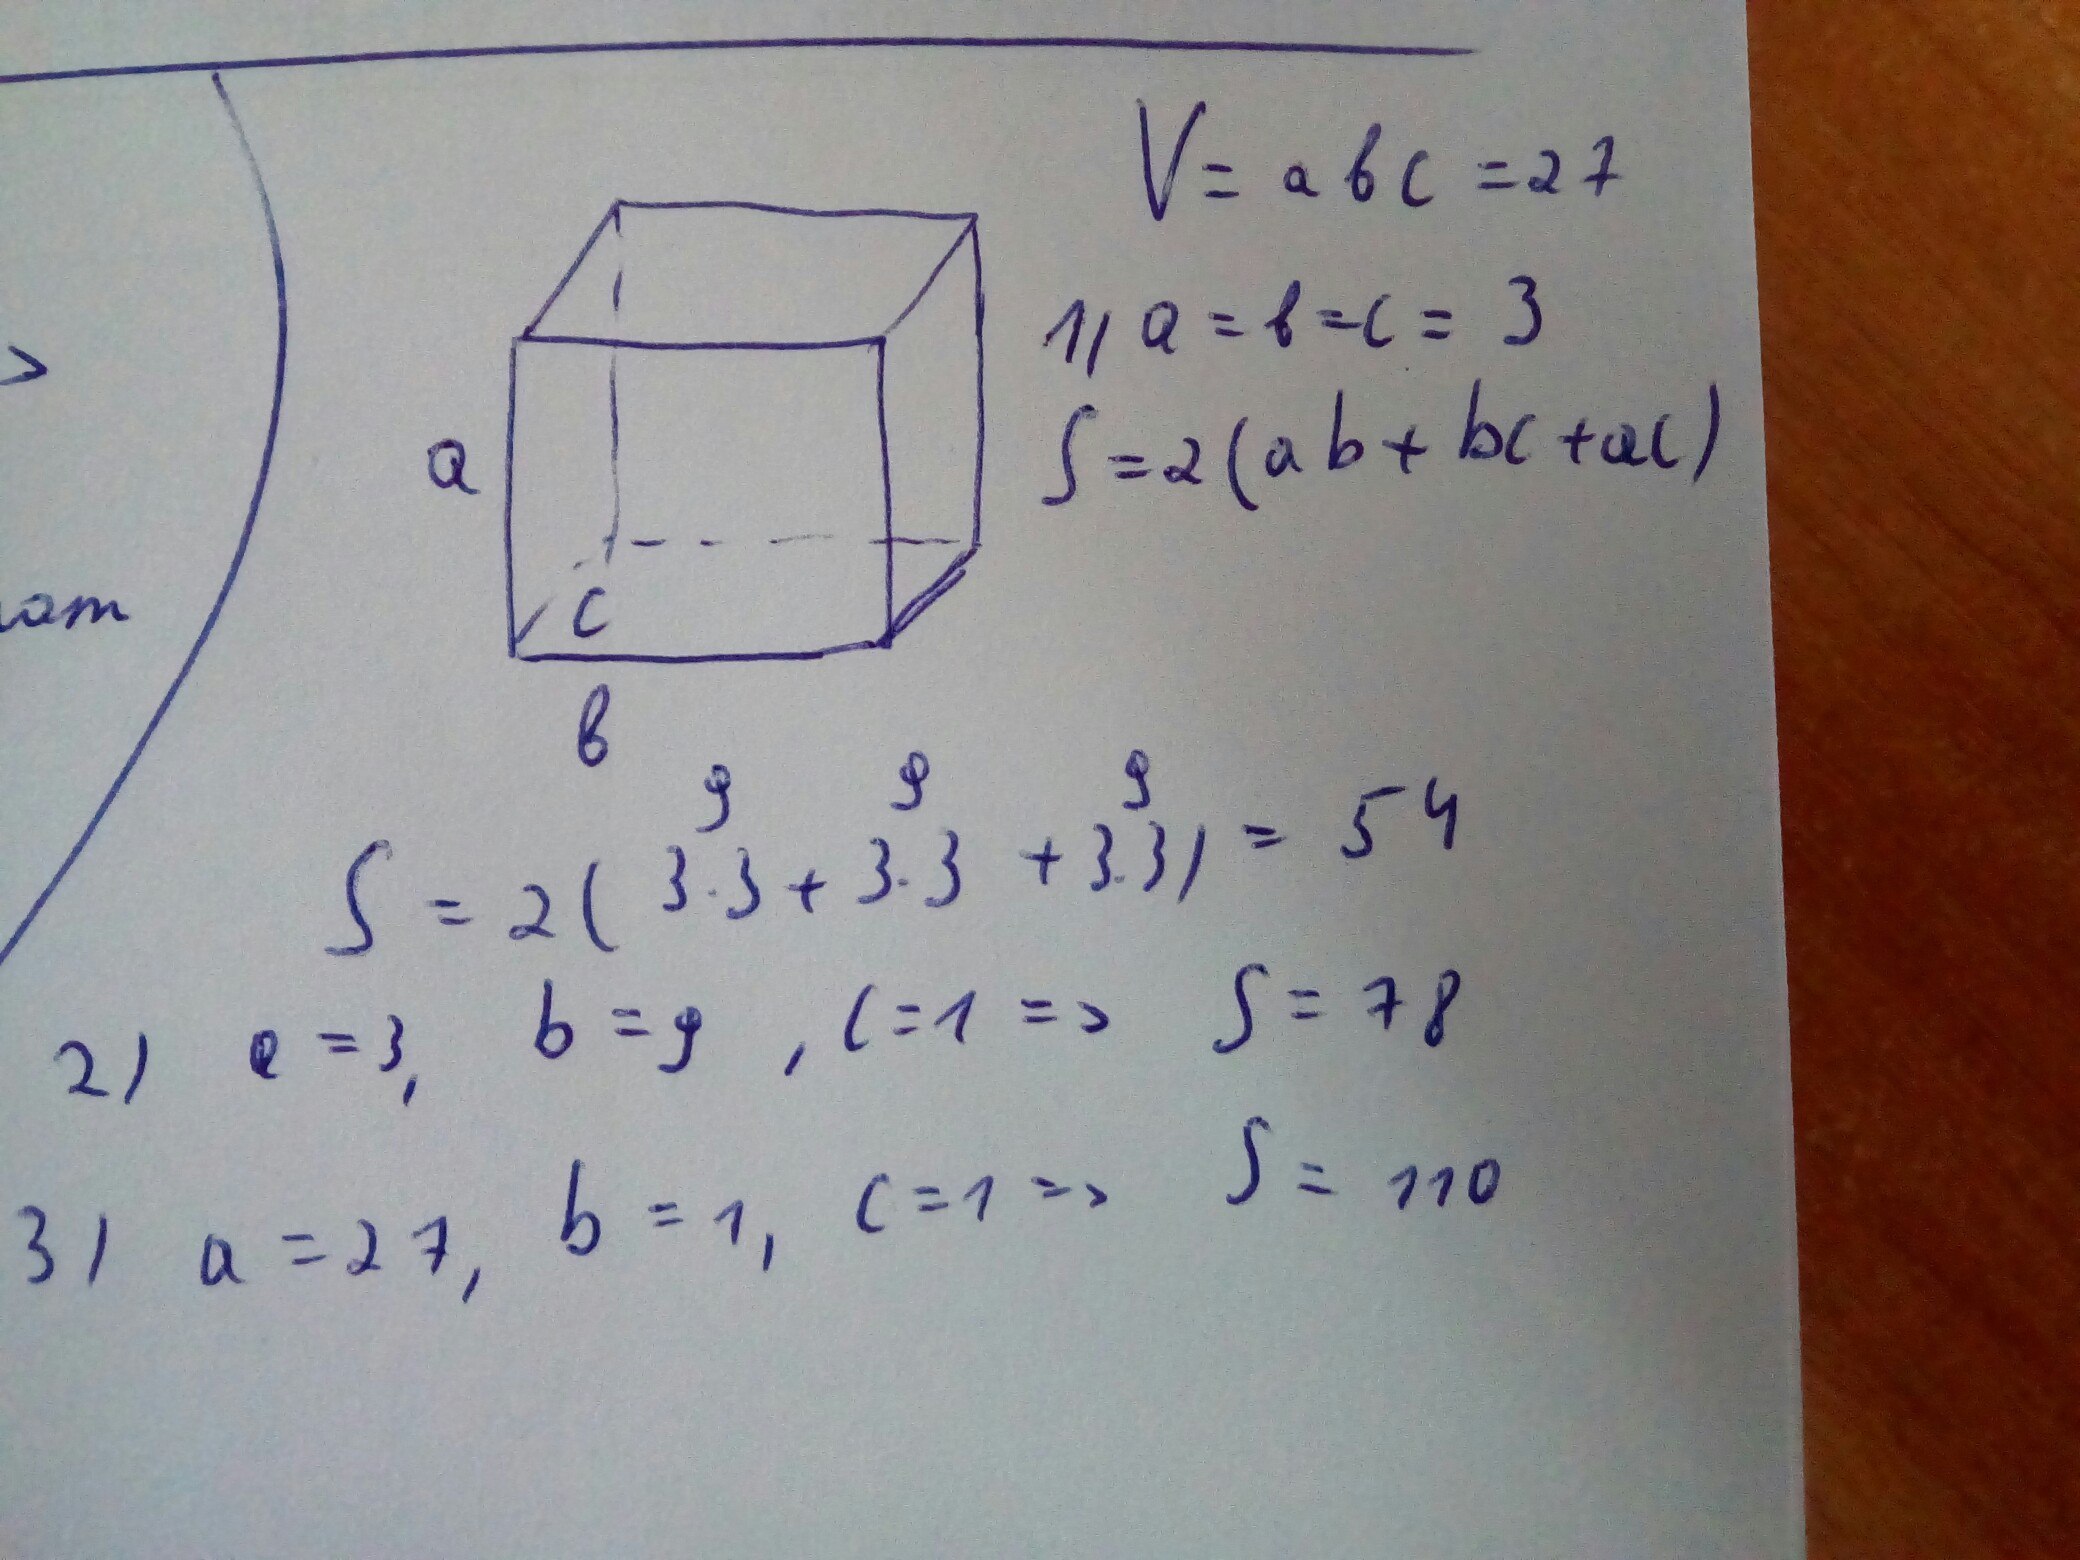 V = a b c = 27
1) a = b = c = 3
S = 2 (ab + bc + ac)
>
a
c
b
9 9 9
S = 2 ( 3.3 + 3.3 + 3.3) = 54
2) a = 3, b = 9, c = 1 => S = 78
3) a = 27, b = 1, c = 1 => S = 110